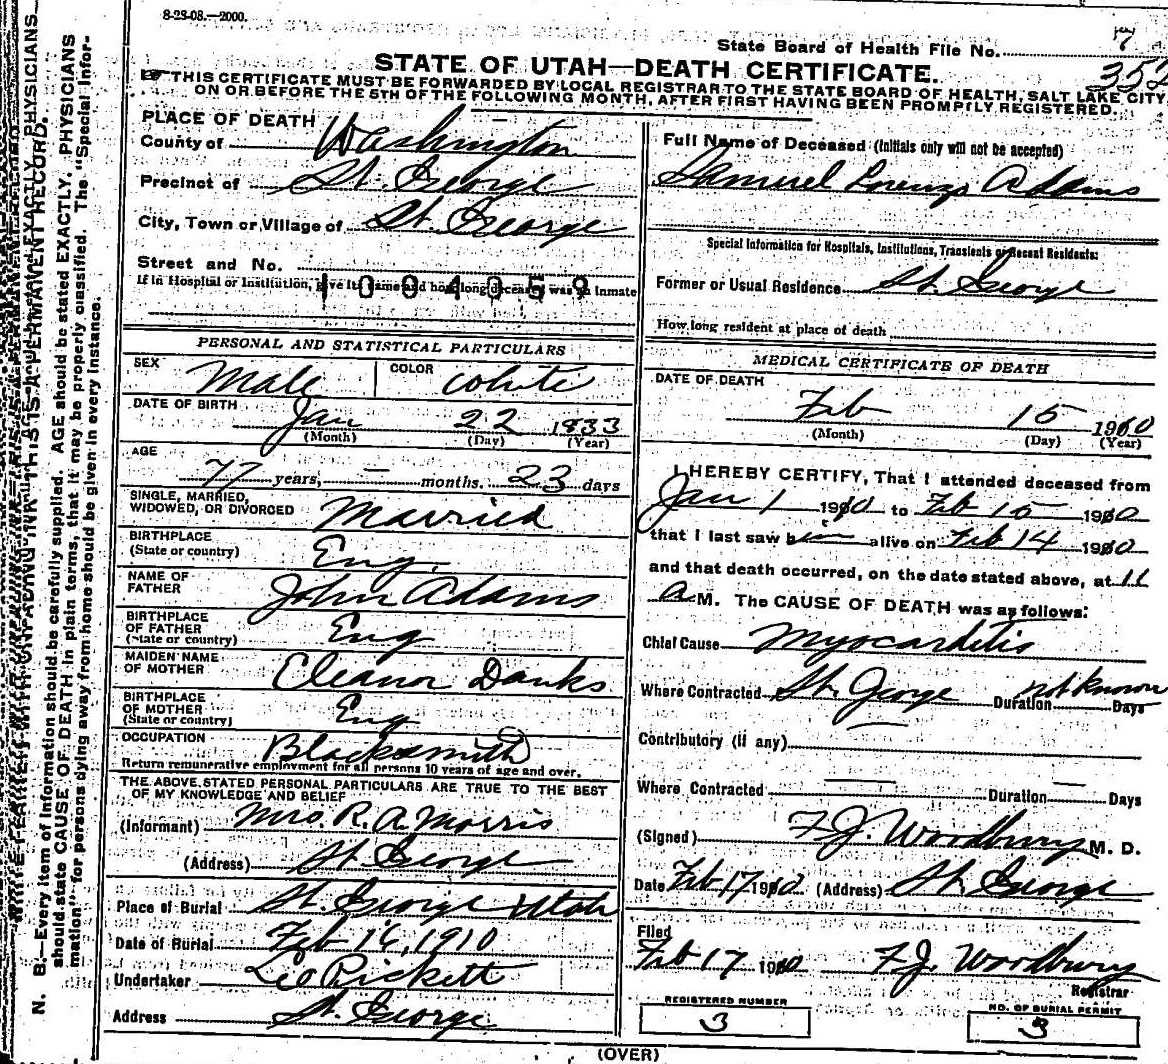 8-23-08.—2000.
State Board of Health File No. 7
352
STATE OF UTAH—DEATH CERTIFICATE.
THIS CERTIFICATE MUST BE FORWARDED BY LOCAL REGISTRAR TO THE STATE BOARD OF HEALTH, SALT LAKE CITY,
ON OR BEFORE THE 5TH OF THE FOLLOWING MONTH, AFTER FIRST HAVING BEEN PROMPTLY REGISTERED.
PLACE OF DEATH
County of Washington
Precinct of St. George
City, Town or Village of St. George
Street and No.
If in Hospital or Institution, give its name and how long deceased was an Inmate
1004059
Full Name of Deceased (Initials only will not be accepted)
Samuel Lorenzo Adams
Special Information for Hospitals, Institutions, Transients or Recent Residents:
Former or Usual Residence St. George
How long resident at place of death
PERSONAL AND STATISTICAL PARTICULARS
SEX Male COLOR White
DATE OF BIRTH
Jan 22 1833
(Month) (Day) (Year)
AGE
77 years, — months. 23 days
SINGLE, MARRIED,
WIDOWED, OR DIVORCED Married
BIRTHPLACE
(State or country) Eng.
NAME OF
FATHER John Adams
BIRTHPLACE
OF FATHER
(State or country) Eng
MAIDEN NAME
OF MOTHER Eleanor Danks
BIRTHPLACE
OF MOTHER
(State or country) Eng
OCCUPATION Blacksmith
Return remunerative employment for all persons 10 years of age and over.
THE ABOVE STATED PERSONAL PARTICULARS ARE TRUE TO THE BEST
OF MY KNOWLEDGE AND BELIEF
(Informant) Mrs. R. A. Morris
(Address) St. George
Place of Burial St. George Utah
Date of Burial Feb 16, 1910
Undertaker Leo Pickett
Address St. George
MEDICAL CERTIFICATE OF DEATH
DATE OF DEATH
Feb 15 1910
(Month) (Day) (Year)
I HEREBY CERTIFY, That I attended deceased from
Jan 1 1910 to Feb 15 1910
that I last saw him alive on Feb 14 1910
and that death occurred, on the date stated above, at 11
A M. The CAUSE OF DEATH was as follows:
Chief Cause Myocarditis
Where Contracted St. George Duration not known Days
Contributory (if any)
Where Contracted — Duration — Days
(Signed) F. J. Woodbury M. D.
Date Feb 17 1910 (Address) St. George
Filed
Feb 17 1910 F. J. Woodbury
Registrar
REGISTERED NUMBER
3
NO. OF BURIAL PERMIT
3
(OVER)
N. B.—Every item of information should be carefully supplied. AGE should be stated EXACTLY. PHYSICIANS
should state CAUSE OF DEATH in plain terms, that it may be properly classified. The "Special Infor-
mation" for persons dying away from home should be given in every instance.